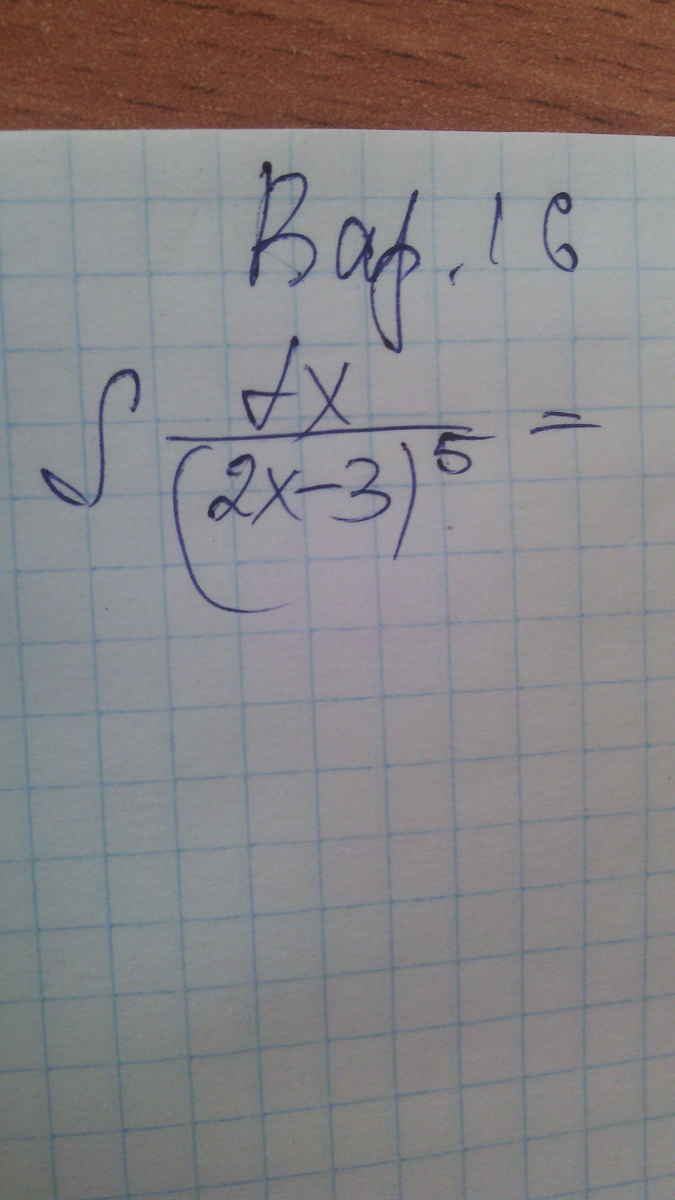 Вар. 16
∫ dx / (2x-3)^5 =